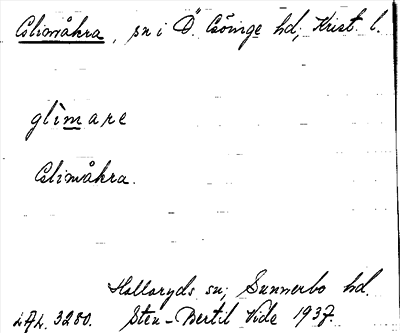 Glimåkra, sn i Ö. Göinge hd, Krist. l.
glìmare
Glimåkra.
Hallaryds sn, Sunnerbo hd.
LAL. 3280. Sten-Bertil Vide 1937.